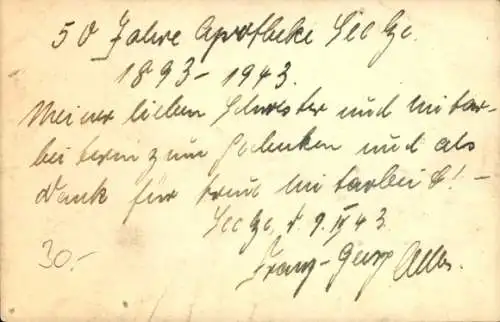 50 Jahre Apotheke
1893-1943.
Meiner lieben Schwester und Mitar-
beiterin zum Gedenken und als
Dank für treue Mitarbeit! -
d. 9. IV 43
30.-
Franz-Georg